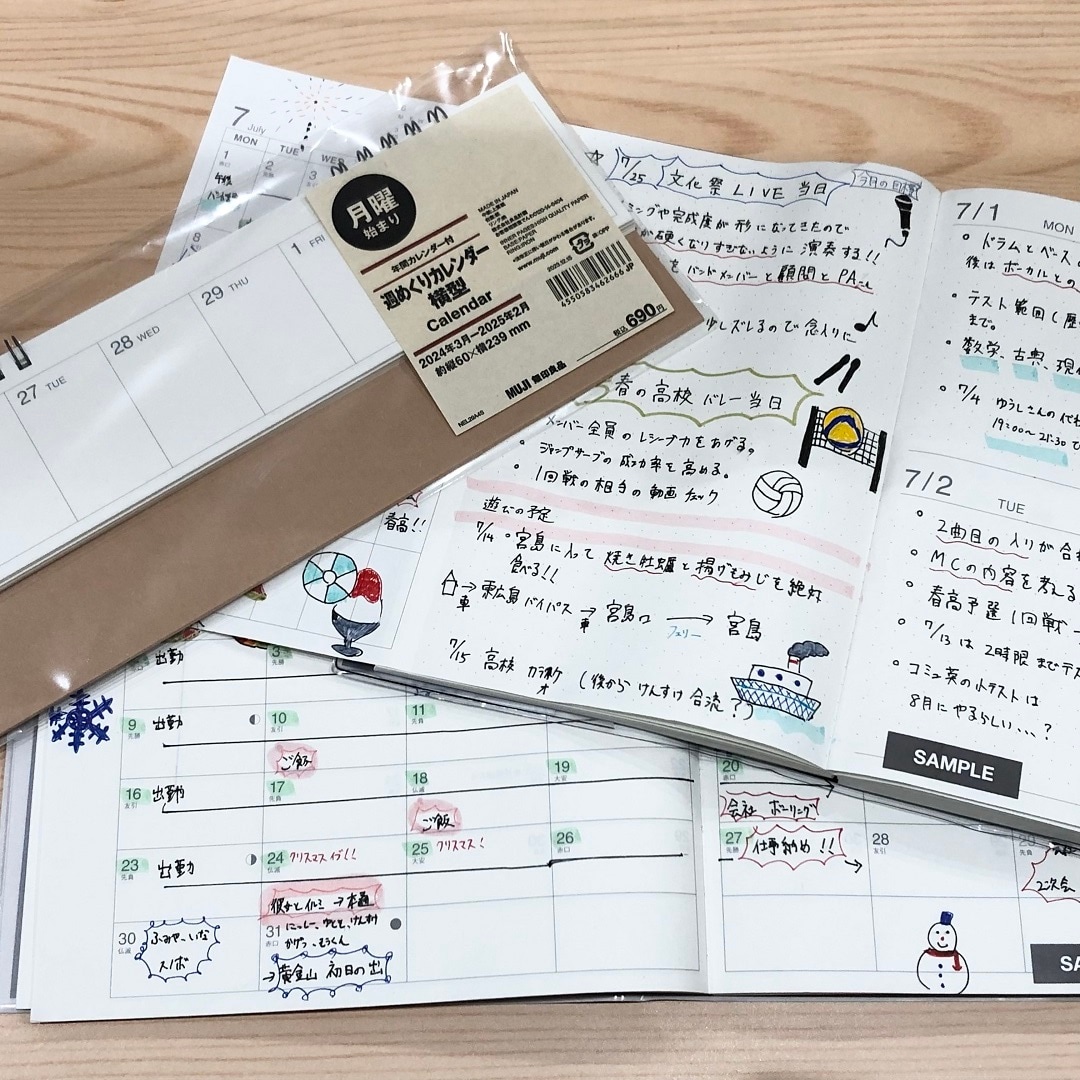 7 July
MON TUE WED
1 2 3
午後
8
月曜
始まり
年間カレンダー付
週めくりカレンダー
横型
Calendar
2024年3月ー2025年2月
約縦60×横239 mm
MUJI 無印良品
MADE IN JAPAN
www.muji.com
4550583462666 JP
税込690円
27 TUE
28 WED
29 THU
1 FRI
7/25 文化祭 LIVE 当日
今月の目標
ミングや完成度が形になてきたので
が硬くなりすぎないように演奏する!!
をバンドメンバーと顧問とPAさん
少しズレるので念入りに
春の高校バレー当日
メンバー全員のレシーブ力をあげる。
・ジャンプサーブの成功率を高める。
・1回戦の相手の動画チェック
遊びの予定
7/14 ・宮島に入って 焼き牡蠣と揚げもみじを絶対
食べる!!
→ 東広島バイパス → 宮島口 → 宮島
車 車 フェリー
7/15 高校 カラオケ (後から けんすけ 合流?)
春高!!
7/1 MON
・ドラムとベースの
後はボーカルとの
・テスト範囲(歴
まで。
・数学、古典、現代
・7/4 ゆうしさんの代
19:00~21:30
7/2 TUE
・2曲目の入りが合
・MCの内容を考える
春高予選1回戦
・7/13は2時限までテス
・コミュ英の小テストは
8月にやるらしい...?
SAMPLE
出勤 3 先勝
9 先勝 出勤 10 友引 11 先負
ご飯
16 友引 出勤 17 先負 18 仏滅 19 大安 20 赤口
ご飯
会社 ボーリング
23 先負 出勤 24 仏滅 クリスマスイヴ!! 25 大安 クリスマス! 26 赤口 27 先勝 仕事納め!! 28 友引 29
彼かとイルミ → 本通
二次会
30 仏滅 ふみや、いな
スノボ
31 赤口 にっしー、ゆとと、けんすけ
かげっ、もうくん
→黄金山 初日の出
SA